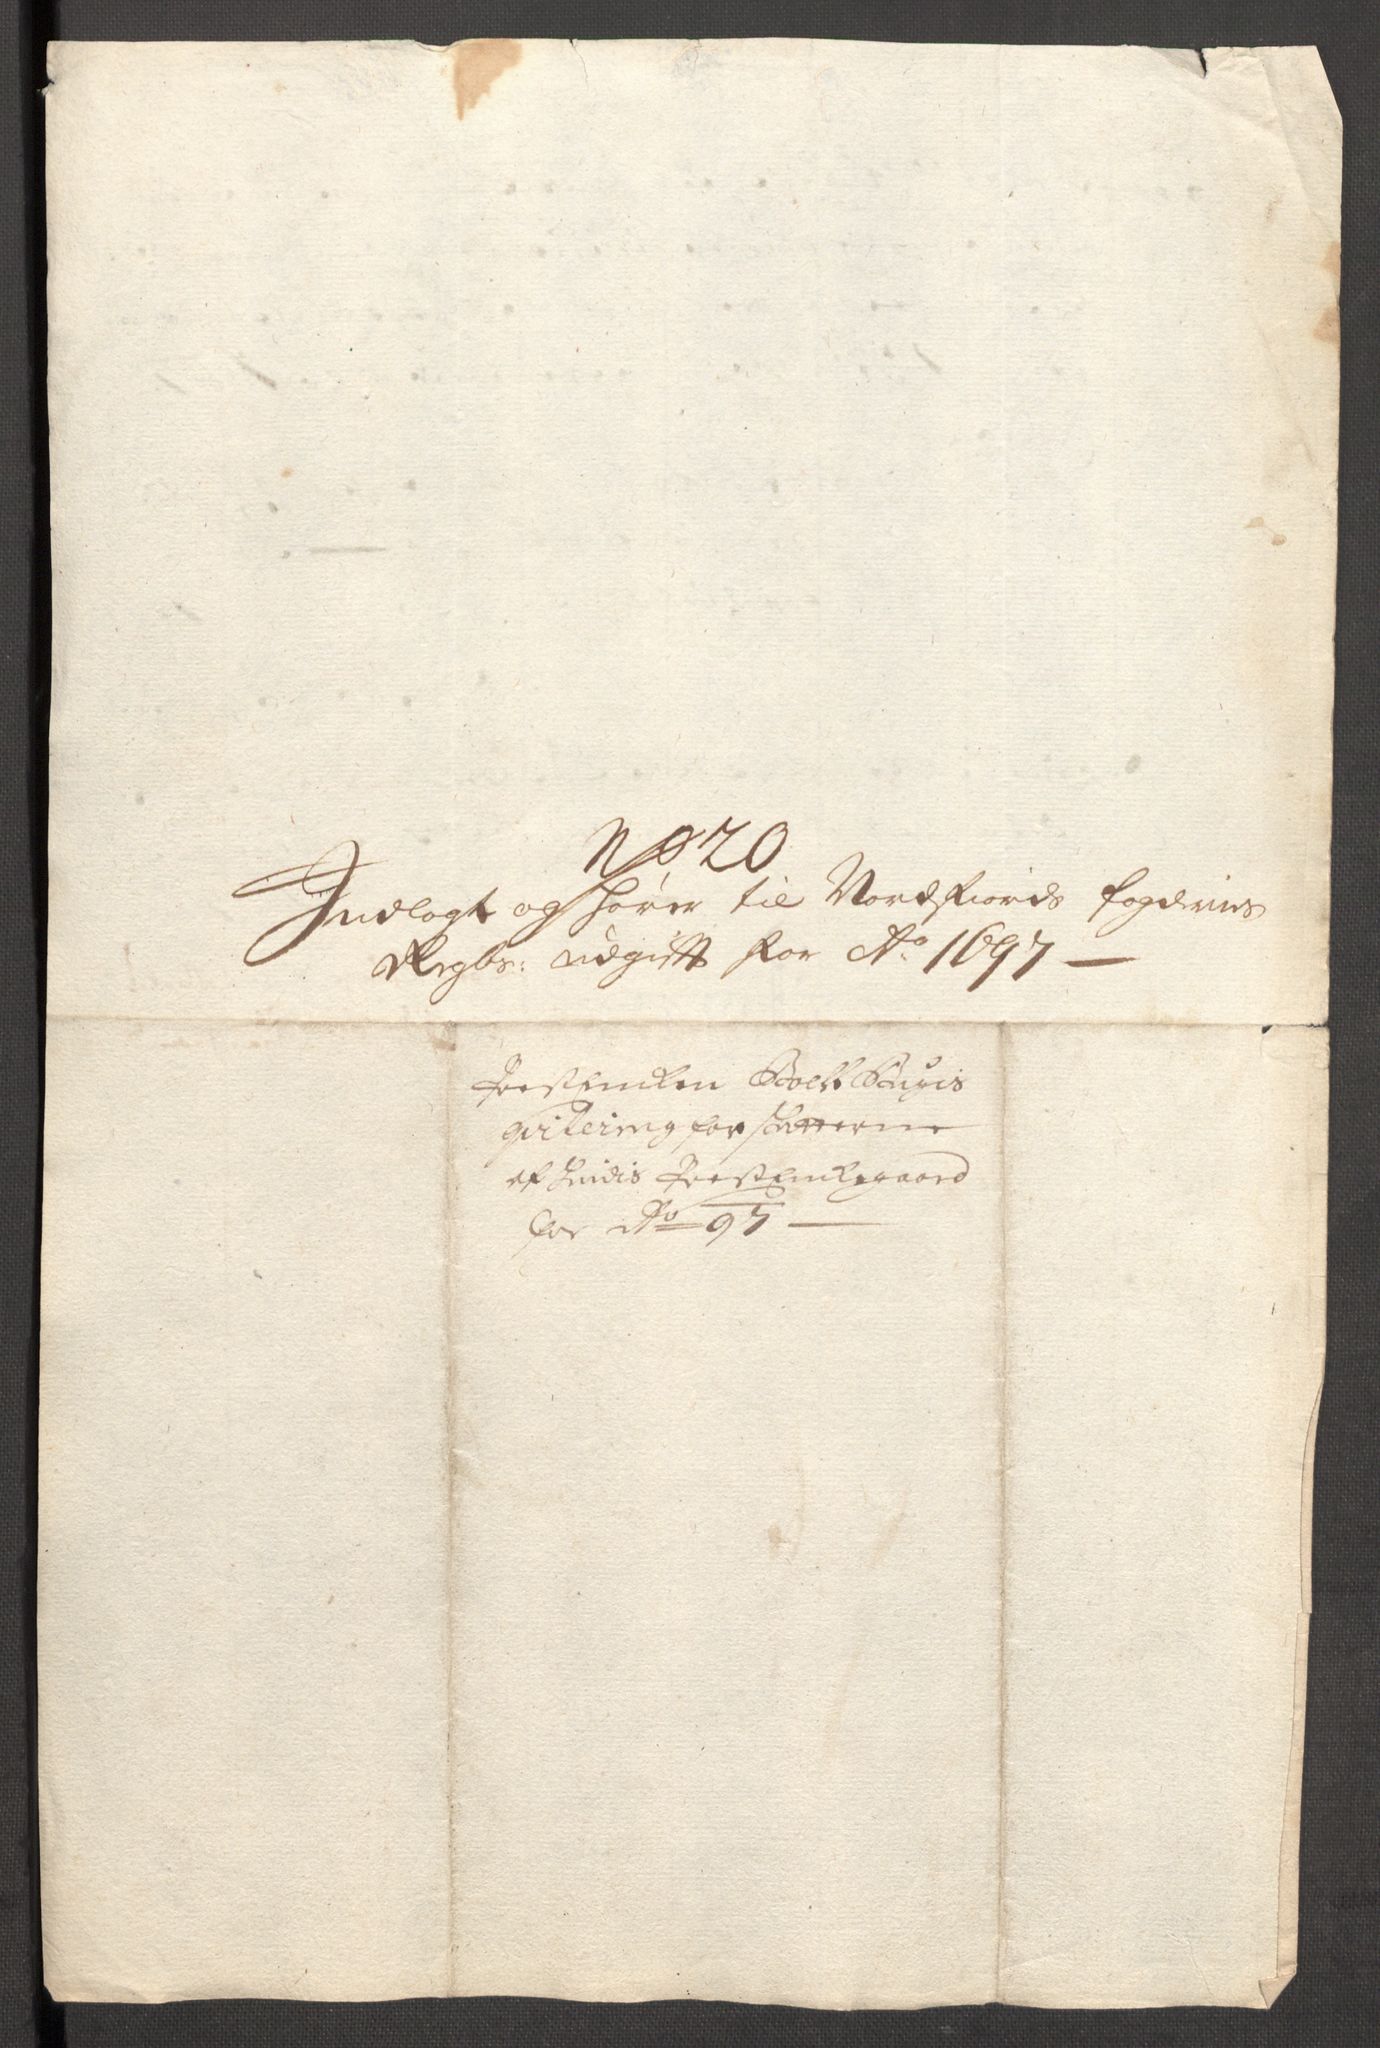 No 20
Indlagt og hører til Nordfiords fogderies
Regbs: udgifft for Ao 1697 —
Præstencken
qvitering for schatterne
af hindis Præstenckegaard
for Ao 97 —